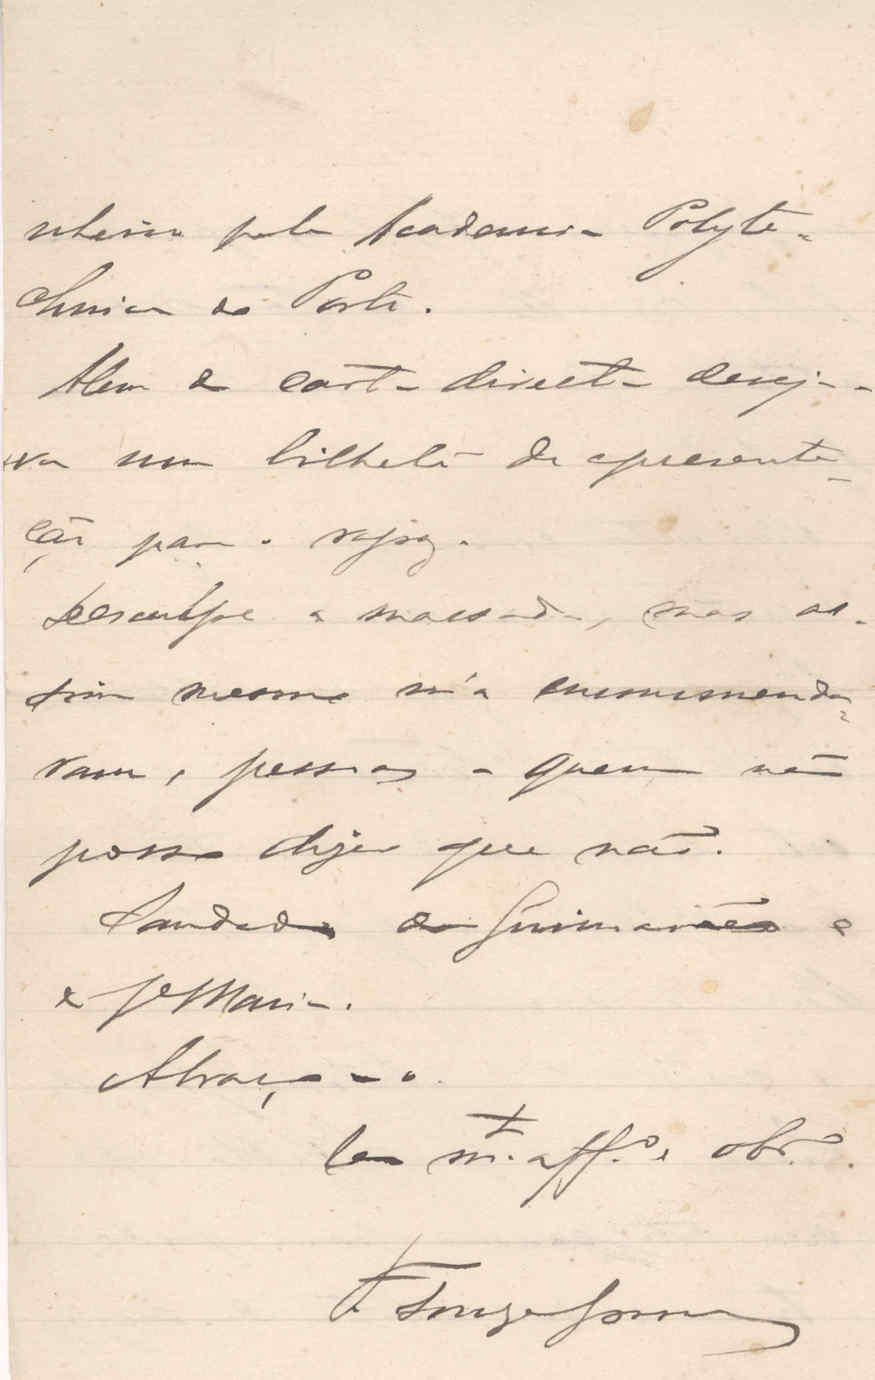 nheiro pela Academia Polyte-
chnica do Porto.
Alem da carta directa deseja-
va um bilhete de apresenta-
ção para o rapaz.
Desculpe a massada, mas as-
sim mesmo m'a encommenda-
ram, pessoas a quem não
posso dizer que não.
Saudades do Guimarães e
e Je Maria.
Abraça-o
m.to aff.o e obr.o
F Souza